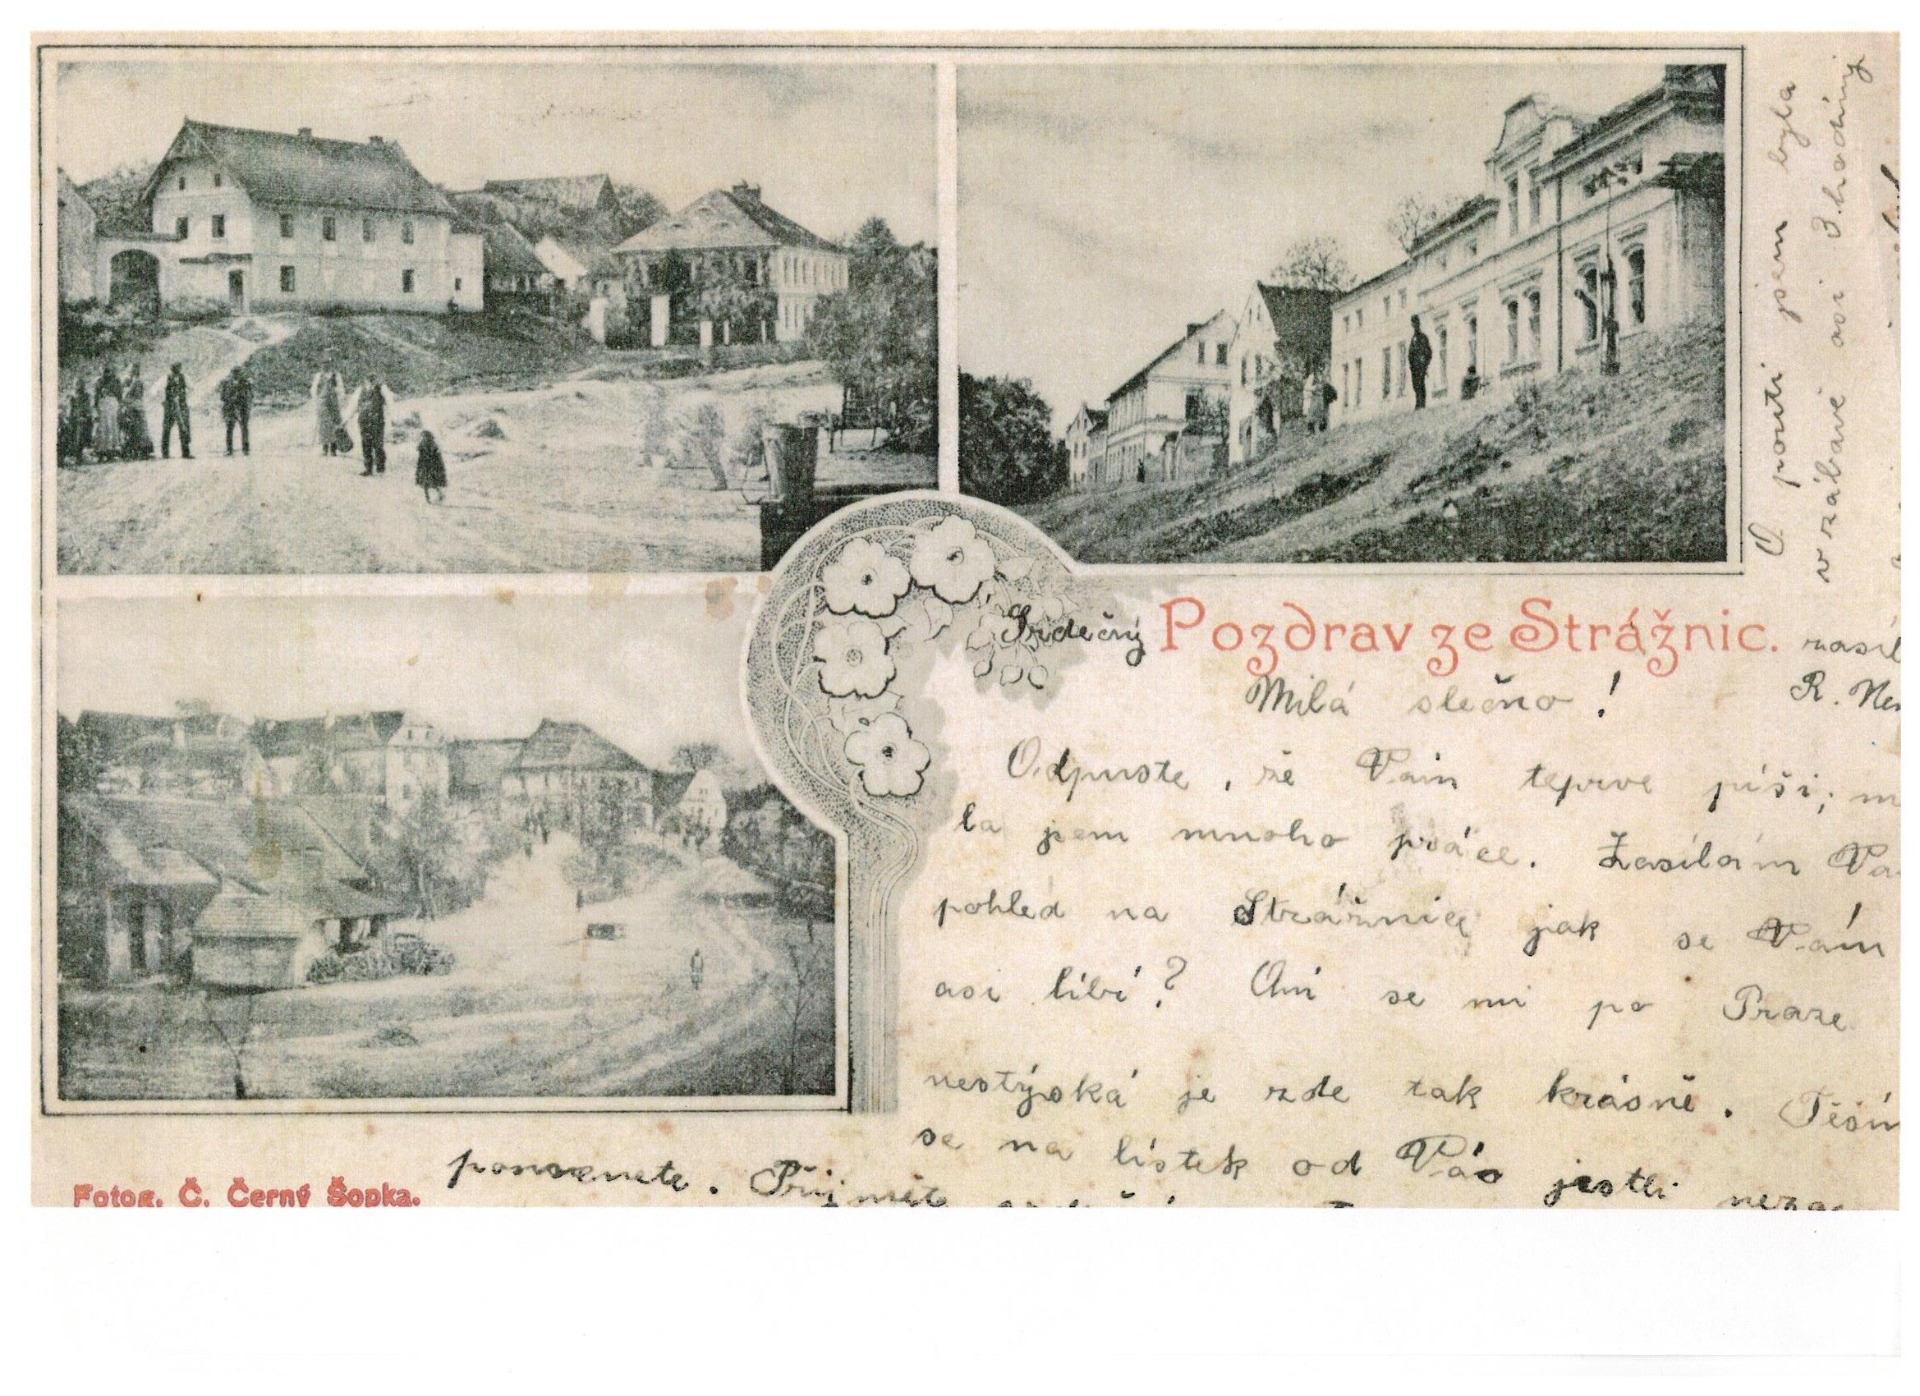 Srdečný Pozdrav ze Strážnic. zasíl
R. Ne
Milá slečno!
Odpuste, že Vám teprve píši; m
la jsem mnoho práce. Zasílám Vá
pohled na Strážnice jak se Vám
asi líbí? Ani se mi po Praze
nestýská je zde tak krásně. Těším
se na lístek od Vás jestli neza
pomenete. Přijměte
O pouti jsem byla
v zábavě asi 3 hodiny
Fotog. Č. Černý Šopka.